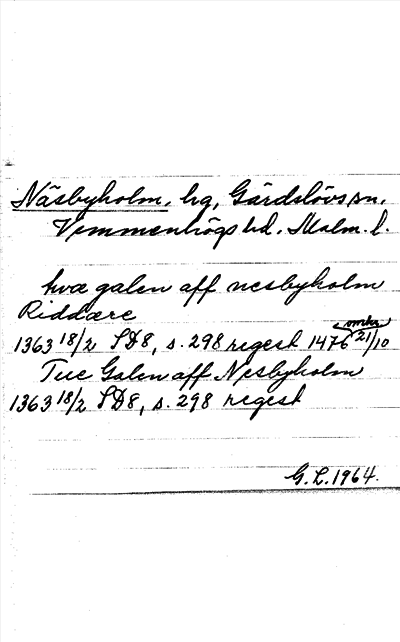 Näsbyholm, hg, Gärdslövs sn,
Vemmenhögs hd. Malm. l.
hvæ galen aff nesbyholm
Riddære
1363 18/2 SD8, s. 298 regest 1476 omkr 21/10
Tue Galen aff Nesbyholm
1363 18/2 SD8, s. 298 regest
G. L. 1964.